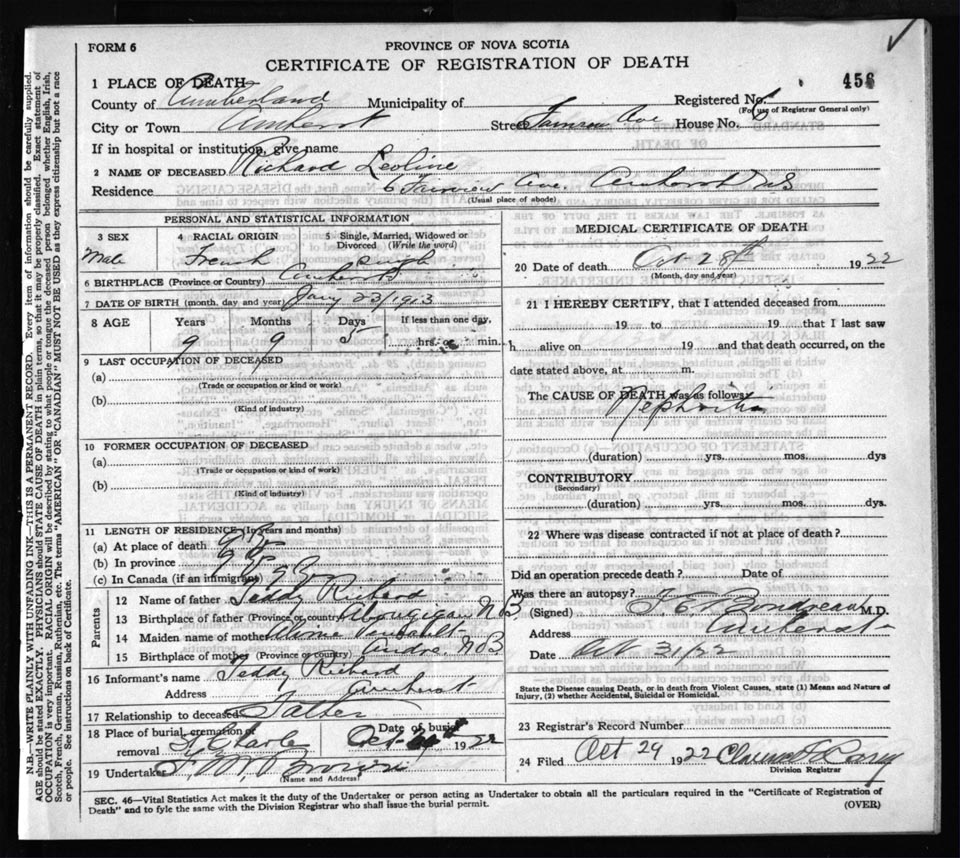 FORM 6
PROVINCE OF NOVA SCOTIA
CERTIFICATE OF REGISTRATION OF DEATH
456
1 PLACE OF DEATH
County of Cumberland Municipality of Registered No.
(For use of Registrar General only)
City or Town Amherst Street Fairview Ave House No. 6
If in hospital or institution, give name
2 NAME OF DECEASED Richard Leoline
Residence 6 Fairview Ave. Amherst NS
(Usual place of abode)
PERSONAL AND STATISTICAL INFORMATION
3 SEX 4 RACIAL ORIGIN 5 Single, Married, Widowed or Divorced (Write the word)
Male French Single
6 BIRTHPLACE (Province or Country) Amherst
7 DATE OF BIRTH (month, day and year) Jany 23/1913
8 AGE Years Months Days If less than one day,
9 9 5 hrs. or min.
9 LAST OCCUPATION OF DECEASED
(a)
(Trade or occupation or kind of work)
(b)
(Kind of industry)
10 FORMER OCCUPATION OF DECEASED
(a)
(Trade or occupation or kind of work)
(b)
(Kind of industry)
11 LENGTH OF RESIDENCE (In years and months)
(a) At place of death
(b) In province
(c) In Canada (if an immigrant)
Parents
12 Name of father Teddy Richard
13 Birthplace of father (Province or country) N B
14 Maiden name of mother
15 Birthplace of mother (Province or country) N B
16 Informant's name Teddy Richard
Address Amherst
17 Relationship to deceased Father
18 Place of burial, cremation or removal St Charles Date of burial Oct 1922
19 Undertaker Brown
(Name and Address)
MEDICAL CERTIFICATE OF DEATH
20 Date of death Oct 28th 1922
(Month, day and year)
21 I HEREBY CERTIFY, that I attended deceased from
19 to 19 that I last saw
h alive on 19 and that death occurred, on the
date stated above, at m.
The CAUSE OF DEATH was as follows:
Nephritis
(duration) yrs. mos. dys
CONTRIBUTORY
(Secondary)
(duration) yrs. mos. dys.
22 Where was disease contracted if not at place of death?
Did an operation precede death? Date of
Was there an autopsy?
(Signed) Bondreau M.D.
Address Amherst
Date Oct 31/22
State the Disease causing Death, or in death from Violent Causes, state (1) Means and Nature of
Injury, (2) whether Accidental, Suicidal or Homicidal.
23 Registrar's Record Number
24 Filed Oct 29 1922
Division Registrar
SEC. 46—Vital Statistics Act makes it the duty of the Undertaker or person acting as Undertaker to obtain all the particulars required in the "Certificate of Registration of
Death" and to fyle the same with the Division Registrar who shall issue the burial permit. (OVER)
N.B.—WRITE PLAINLY WITH UNFADING INK—THIS IS A PERMANENT RECORD. Every item of information should be carefully supplied.
AGE should be stated EXACTLY. PHYSICIANS should STATE CAUSE OF DEATH in plain terms, so that it may be properly classified. Exact statement of
OCCUPATION is very important. RACIAL ORIGIN will be described by stating to what people or tongue the deceased person belonged whether English, Irish,
Scotch, French, German, Russian, Ruthenian, etc. The terms "AMERICAN" OR "CANADIAN" MUST NOT BE USED as they express citizenship but not a race
or people. See instructions on back of Certificate.